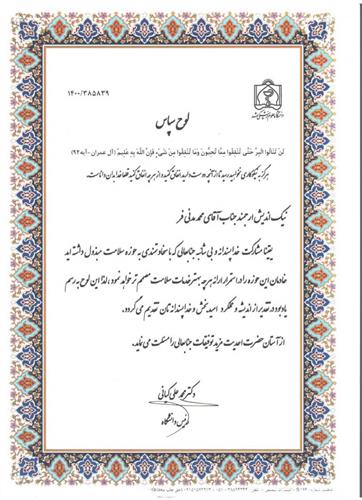 دانشگاه علوم پزشکی مشهد
۱۴۰۰/۳۸۵۸۳۹
لوح سپاس
لَن تَنَالُوا البِرَّ حَتَّى تُنْفِقُوا مِمَّا تُحِبُّونَ وَمَا تُنْفِقُوا مِنْ شَيْءٍ فَإِنَّ اللَّهَ بِهِ عَلِيمٌ (آل عمران -آیه۹۲)
هرگز به نیکوکاری نخواهید رسید تا از آنچه دوست دارید انفاق کنید و از هر چه انفاق کنید قطعا خدا بدان داناست.
نیک اندیش ارجمند جناب آقای محمد مدنی فر
یقینا مشارکت خداپسندانه و بی شائبه جنابعالی که با سخاوتمندی به حوزه سلامت مبذول داشته اید
خادمان این حوزه را در استمرار ارائه هر چه بهتر خدمات سلامت مصمم تر خواهد نمود، لذا این لوح به رسم
یادبود در تقدیر از اندیشه و عملکرد امیدبخش و خداپسندانه تان تقدیم می گردد.
از آستان حضرت احدیت مزید توفیقات جنابعالی را مسئلت می نماید.
دکتر محمد علی کیانی
رئیس دانشگاه